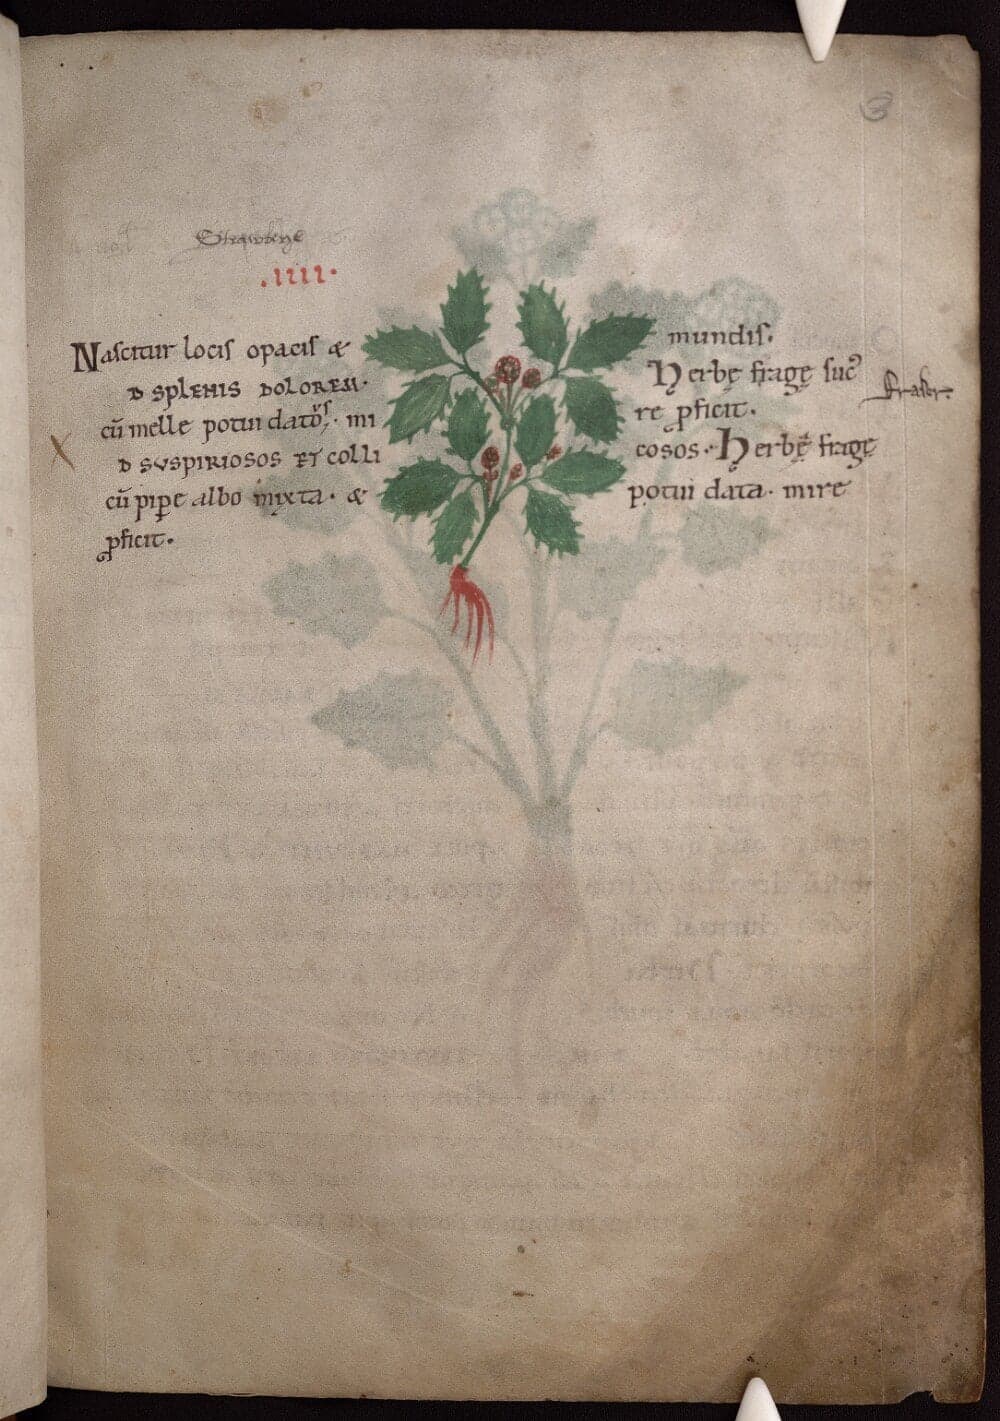 3
Strawberye
.IIII.
Nascitur locis opacis & mundis.
D SPLENIS DOLOREM. Herbę fragę suc̄
cū melle potui dat', mi re pficit.
D SUSPIRIOSOS ET colli cosos. Herbę fragę
cū pipe albo mixta. & potui data. mire
pficit.